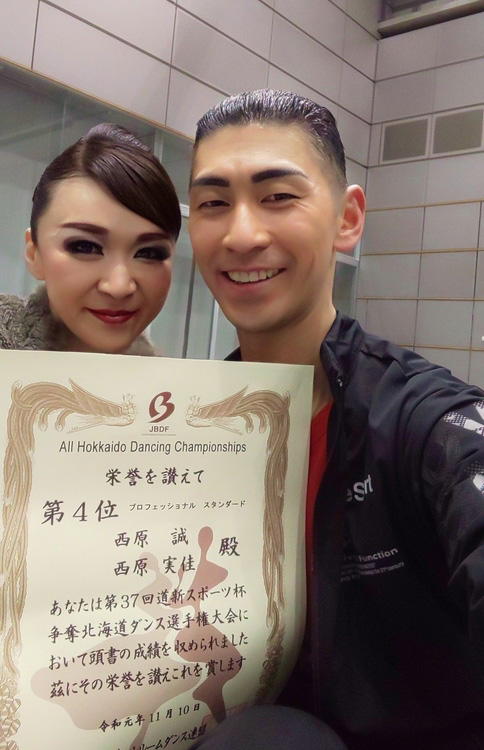 JBDF
All Hokkaido Dancing Championships
栄誉を讃えて
第4位 プロフェッショナル スタンダード
西原 誠
西原 実佳 殿
あなたは第37回道新スポーツ杯
争奪北海道ダンス選手権大会に
おいて頭書の成績を収められました
茲にその栄誉を讃えこれを賞します
令和元年11月10日
Function